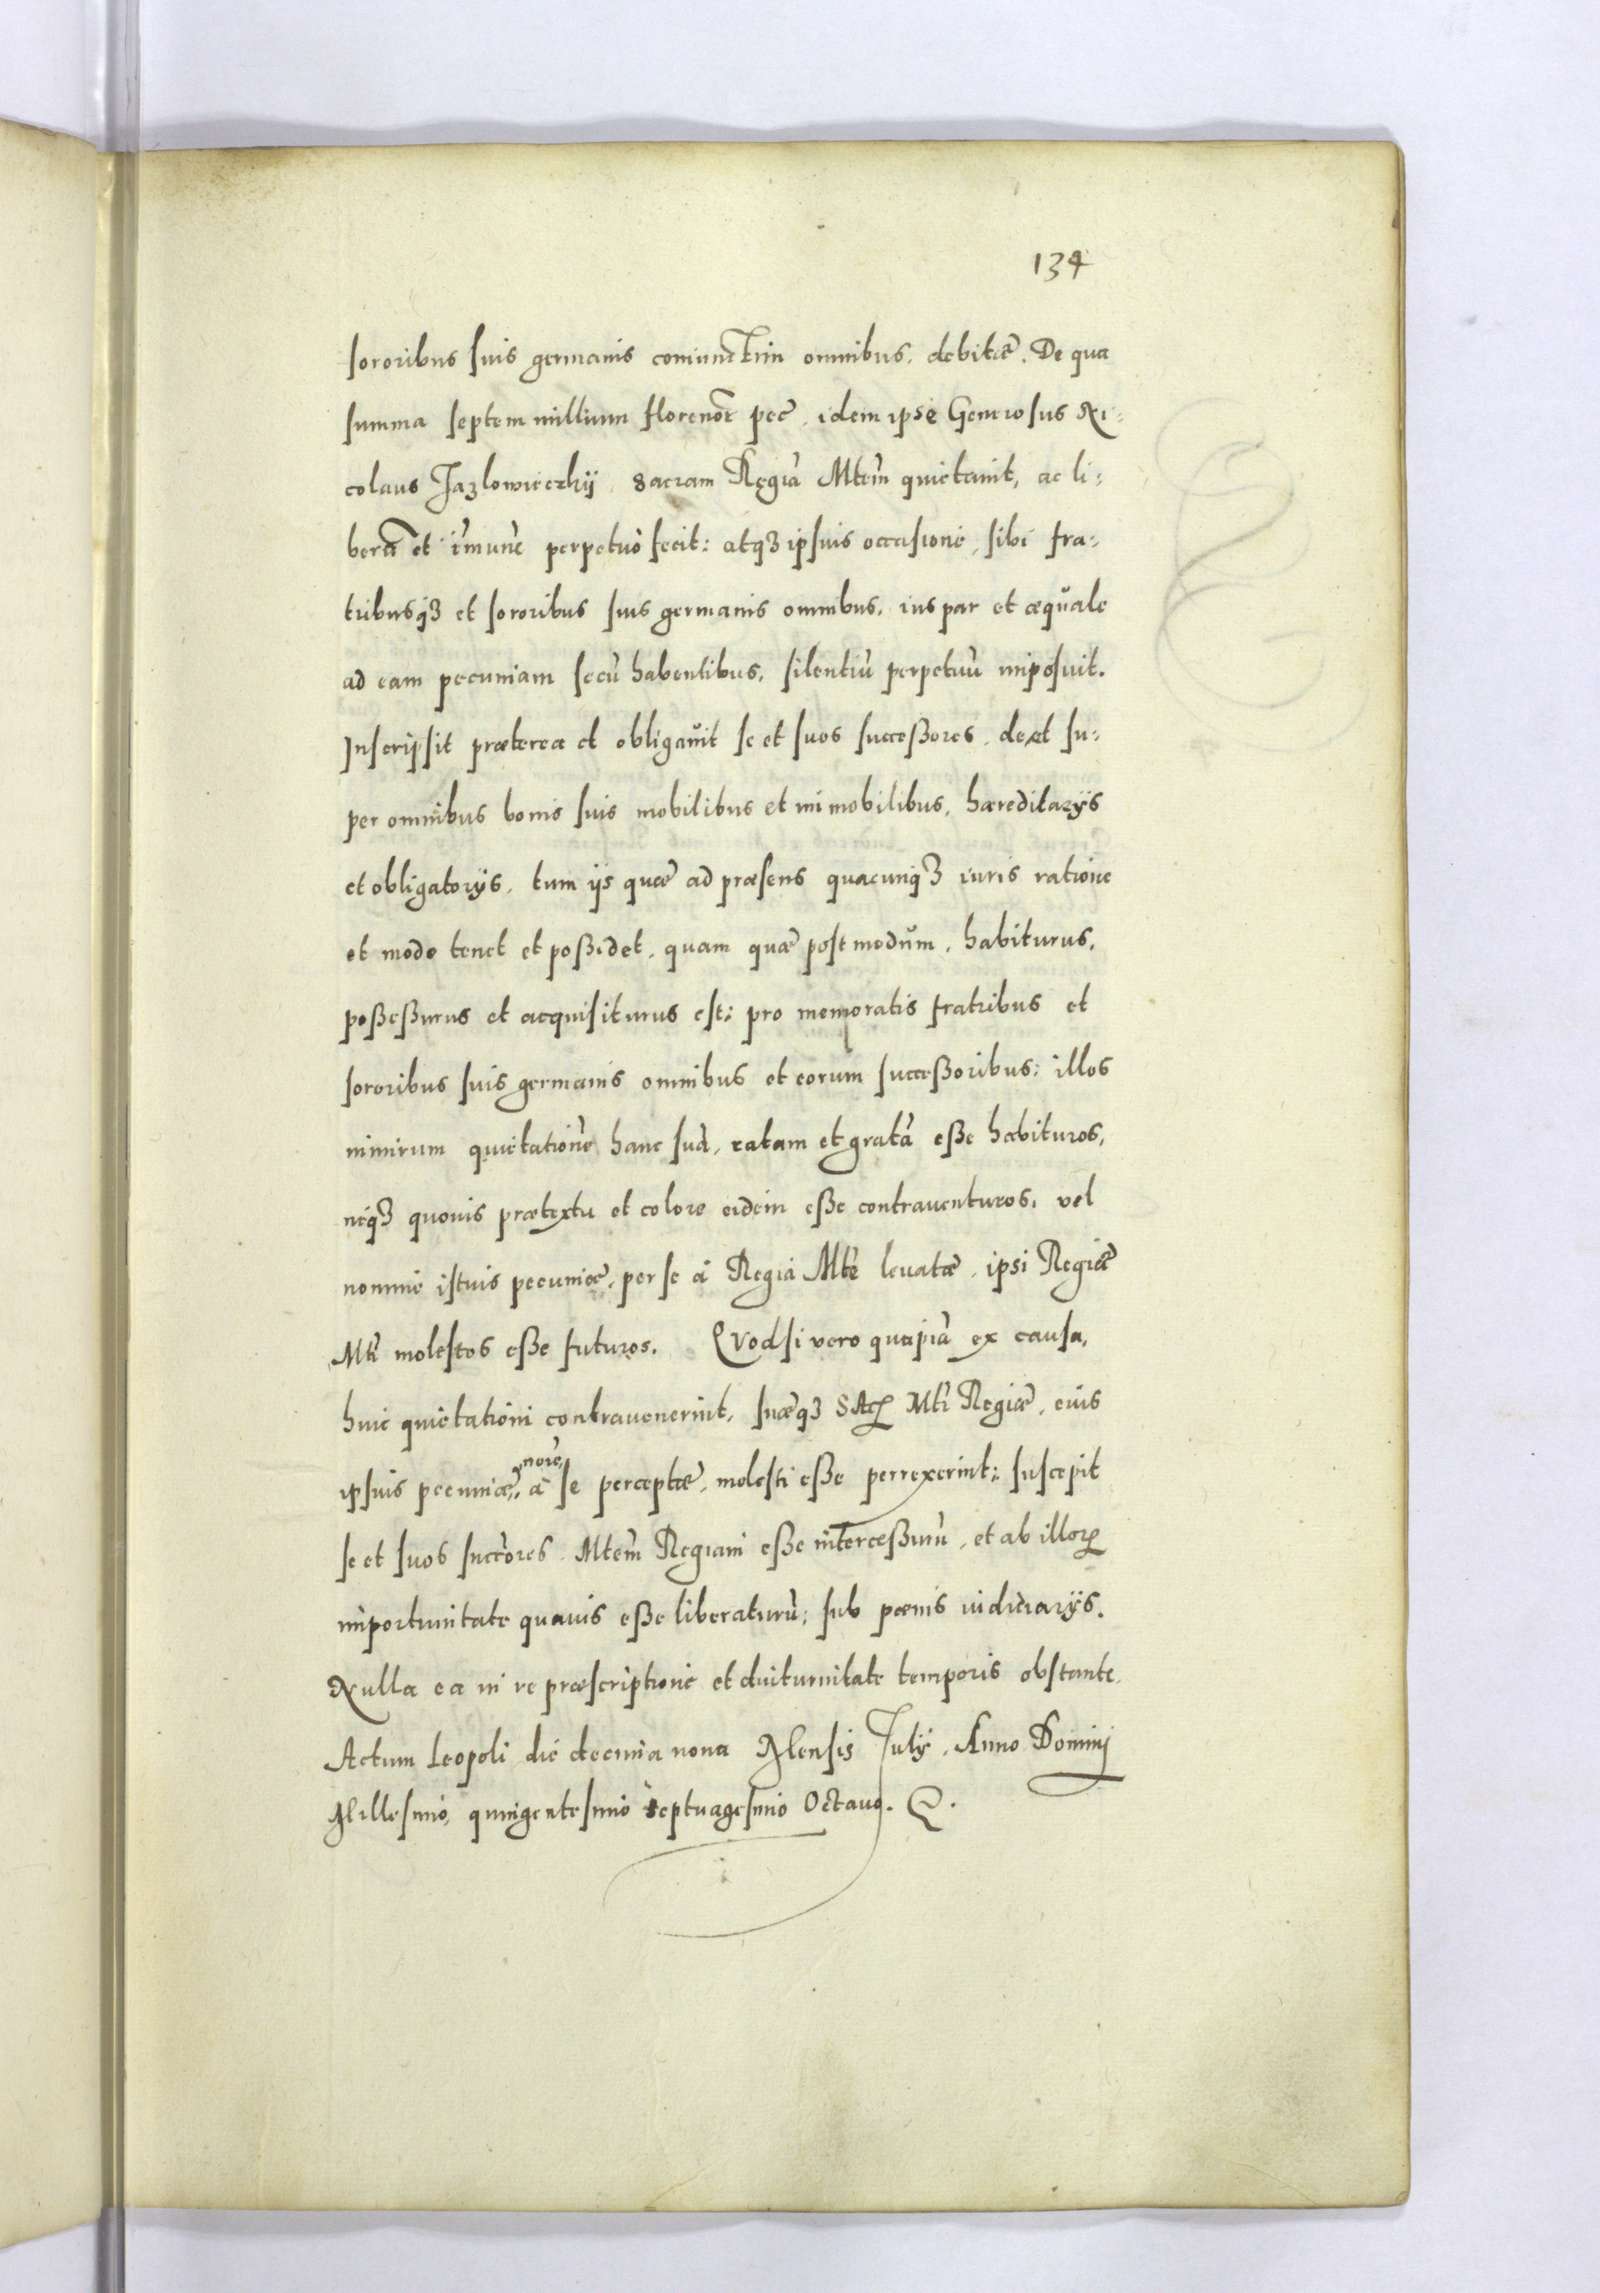 134
sororibus suis germanis coniunctim omnibus, debitæ. De qua
summa septem millium florenor̃ pec̃, idem ipse Generosus Ni-
colaus Jazlowieczkij, Sacram Regiã Mtem̃ quietauit, ac li-
berã et im̃unẽ perpetuò fecit: atqꝫ ipsius occasione, sibi fra-
tribusqꝫ et sororibus suis germanis omnibus, ius par et æquale
ad eam pecuniam secũ habentibus, silentiũ perpetuũ imposuit.
Inscripsit præterea et obligauit se et suos successores, de et su-
per omnibus bonis suis mobilibus et immobilibus, hæreditarijs
et obligatorijs, tum ijs quæ ad præsens quacunqꝫ iuris ratione
et modo tenet et possidet, quam quæ post modum, habiturus,
possessurus et acquisiturus est: pro memoratis fratribus et
sororibus suis germanis omnibus et eorum successoribus: illos
nimirum quietationẽ hanc suã, ratam et gratã esse habituros,
neqꝫ quouis prætextu et colore eidem esse contrauenturos, vel
nomine istius pecuniæ, per se à Regia Mte leuatæ, ipsi Regiæ
Mti molestos esse futuros. Quodsi vero quapiã ex causa,
huic quietationi contrauenerint, suæqꝫ SAcꝝ Mti Regiæ, eius
ipsius pecuniæ, noie, à se perceptæ, molesti esse perrexerint: suscepit
se et suos succ̃ores, Mtem̃ Regiam esse intercessurũ, et ab illoꝝ
importunitate quauis esse liberaturũ; sub pœnis iudiciarijs.
Nulla ea in re præscriptione et diuturnitate temporis obstante.
Actum Leopoli die decima nona Mensis Julij, Anno Dominj
Millesimo, quingentesimo septuagesimo Octauo.